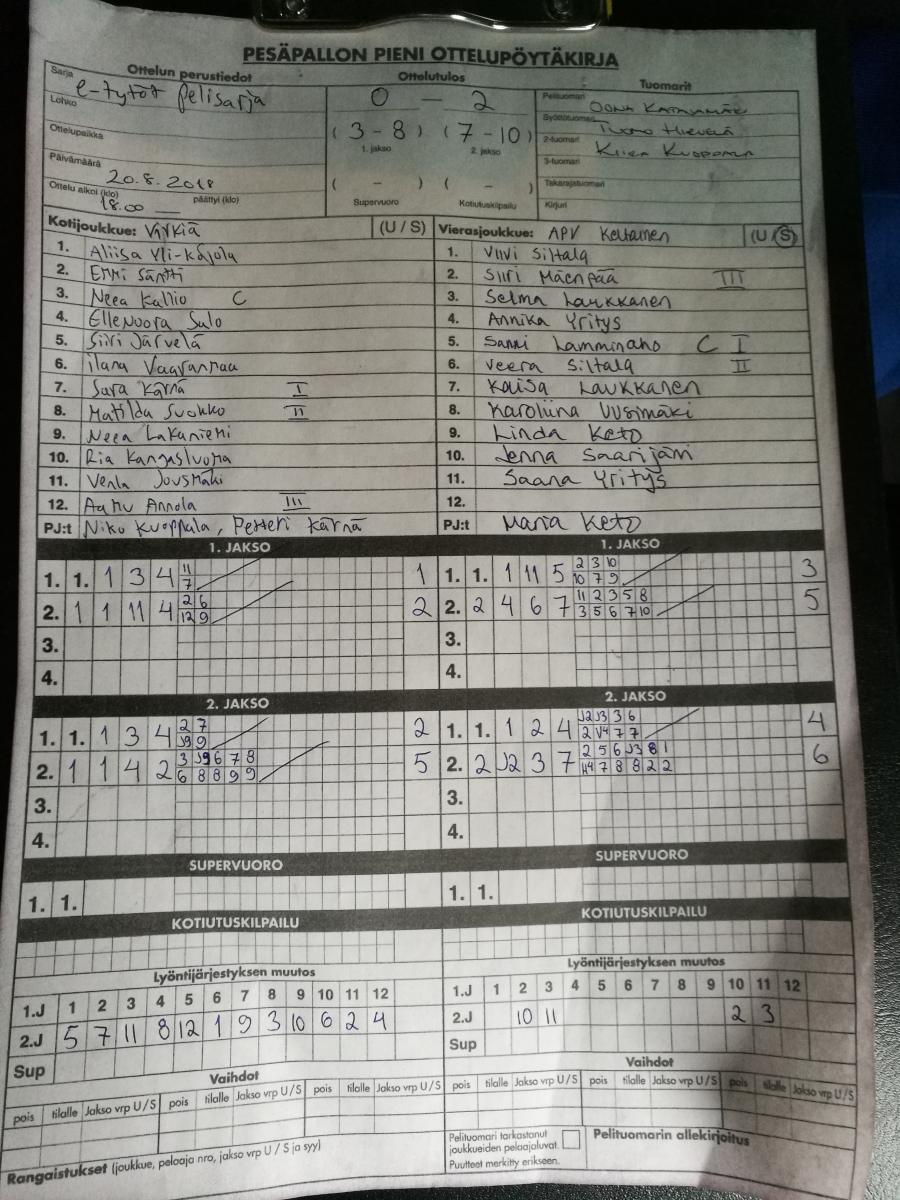 PESÄPALLON PIENI OTTELUPÖYTÄKIRJA
Ottelun perustiedot Ottelutulos Tuomarit
Sarja e-tytöt pelisarja
Lohko
Ottelupaikka
Päivämäärä 20.8.2018
Ottelu alkoi (klo) 18.00 päättyi (klo)
0 - 2
(3 - 8) (7 - 10)
1. jakso 2. jakso
( - ) ( - )
Supervuoro Kotiutuskilpailu
Pelituomari Oona
Syöttötuomari Tuomo
2-tuomari Kuoppala
3-tuomari
Takarajatuomari
Kirjuri
Kotijoukkue: Virkiä (U / S)
1. Aliisa Yli-Kojola
2. Emmi Säntti
3. Neea Kallio C
4. Ellenoora Salo
5. Siiri Järvelä
6. ilana Vaaranmaa
7. Sara Kärnä I
8. Matilda Suokko II
9. Neea Lakaniemi
10. Ria Kangasluoma
11. Venla Jousmäki
12. Aamu Annola III
PJ:t Niko Kuoppala, Petteri Kärnä
Vierasjoukkue: APV Keltainen (U / S)
1. Viivi Siltala
2. Siiri Mäenpää III
3. Selma Laukkanen
4. Annika Yritys
5. Sanni Lamminaho C I
6. Veera Siltala II
7. Kaisa Laukkanen
8. Karoliina Uusimäki
9. Linda Keto
10. Jenna Saarijärvi
11. Saana Yritys
12.
PJ:t Maria Keto
1. JAKSO
1. 1. 1 3 4 11 1
7
2. 1 1 11 4 2 6 2
12 9
3.
4.
1. JAKSO
1. 1. 1 11 5 2 3 10 3
10 7 9
2. 2 4 6 7 11 2 3 5 8 5
3 5 6 7 10
3.
4.
2. JAKSO
1. 1. 1 3 4 2 7 2
J9 9
2. 1 1 4 2 3 J9 6 7 8 5
6 8 8 9 9
3.
4.
2. JAKSO
1. 1. 1 2 4 J2 J3 3 6 4
2 V4 7 7
2. 2 J2 3 7 2 5 6 J3 8 1 6
7 8 8 2 2
3.
4.
SUPERVUORO
1. 1.
SUPERVUORO
1. 1.
KOTIUTUSKILPAILU
KOTIUTUSKILPAILU
Lyöntijärjestyksen muutos
1.J 1 2 3 4 5 6 7 8 9 10 11 12
2.J 5 7 11 8 12 1 9 3 10 6 2 4
Sup
Lyöntijärjestyksen muutos
1.J 1 2 3 4 5 6 7 8 9 10 11 12
2.J 10 11 2 3
Sup
Vaihdot
pois tilalle Jakso vrp U / S pois tilalle Jakso vrp U / S pois tilalle Jakso vrp U / S
Vaihdot
pois tilalle Jakso vrp U / S pois tilalle Jakso vrp U / S pois tilalle Jakso vrp U / S
Rangaistukset (joukkue, pelaaja nro, jakso vrp U / S ja syy)
Pelituomari tarkastanut
joukkueiden pelaajaluvat.
Puutteet merkitty erikseen.
Pelituomarin allekirjoitus